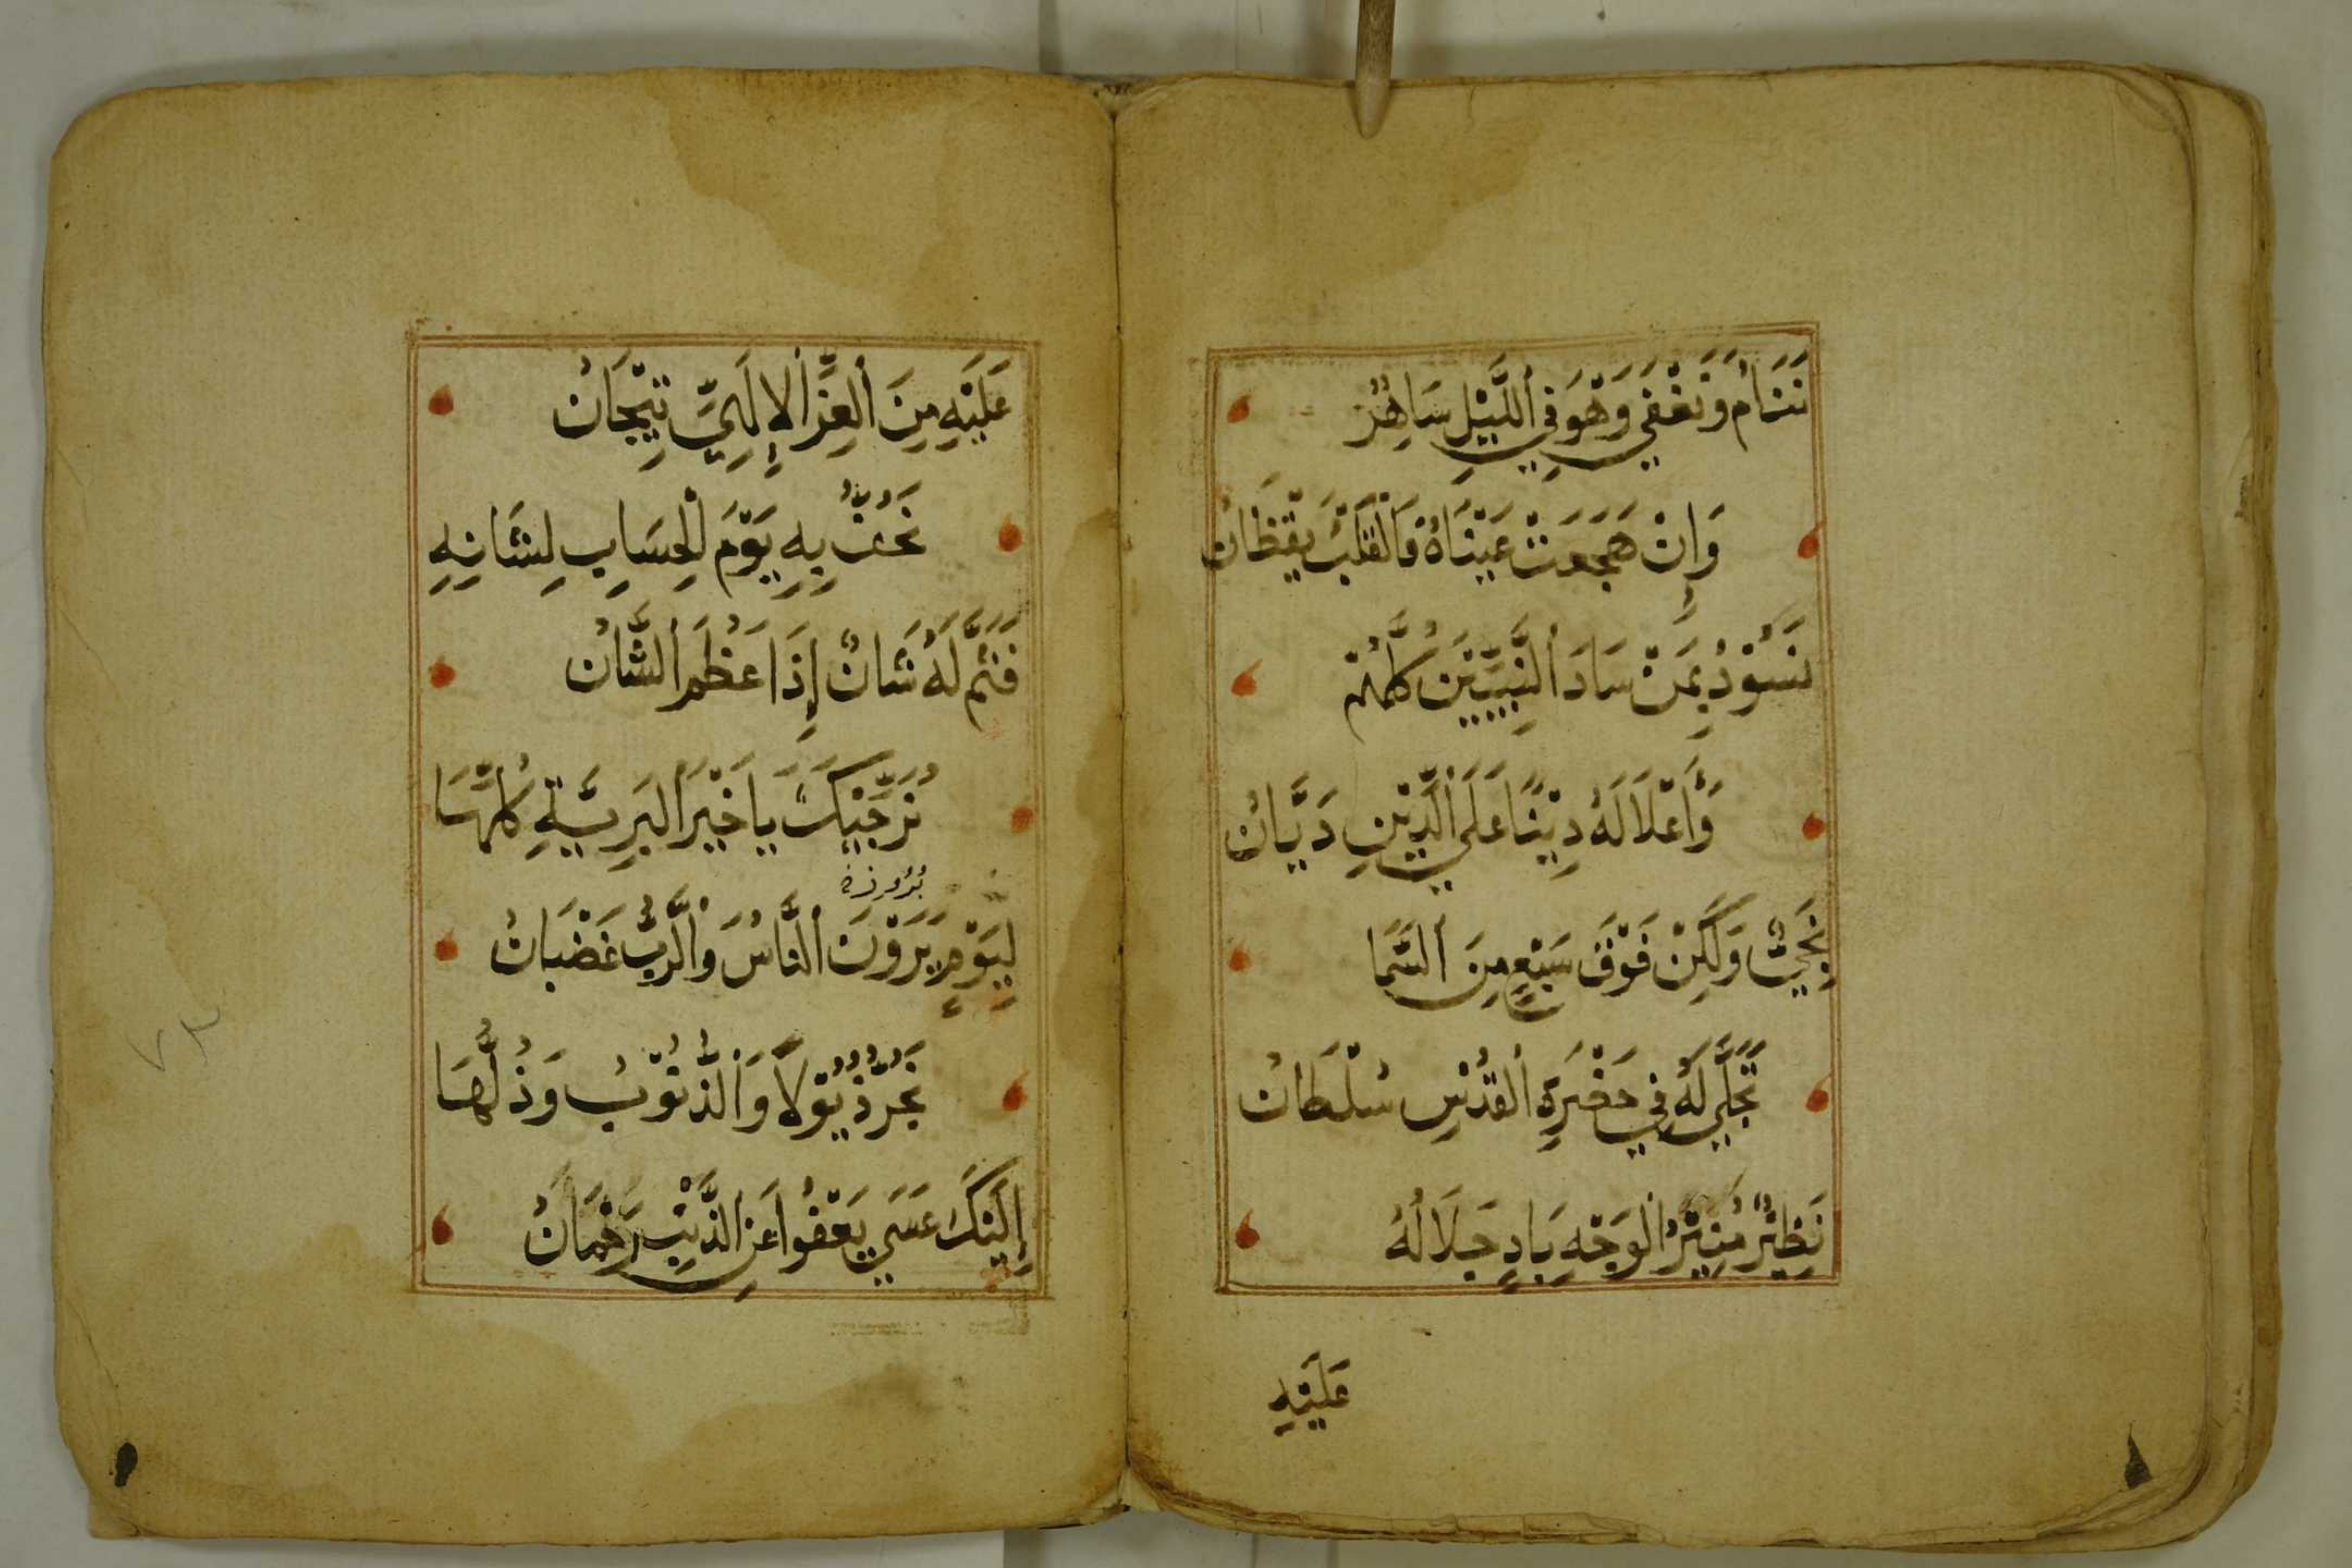 نَنَامُ وَنَغْفِي وَهْوَ فِي اَللَّيْلِ سَاهِرٌ
وَإِنْ هَجَعَتْ عَيْنَاهُ فَالْقَلْبُ يَقْظَانُ
نَسُوْدُ بِمَنْ سَادَ اَلنَّبِيِّيْنَ كُلَّهُمْ
وَأَعْلَا لَهُ دِيْنًا عَلَي الدِّيْنِ دَيَّانُ
نَجِيٌّ وَلَكِنْ فَوْقَ سَبْعٍ مِنَ اَلسَّمَا
تَجَلَّي لَهُ فِي حَضْرَةِ اَلقُدْسِ سُلْطَانُ
نَظِيْرٌ مُنِيْرُ الْوَجْهِ بَادٍ جَلَالُهُ
عَلَيْهِ
عَلَيْهِ مِنَ اَلعِزِّ اَلإِلَهِيِّ تِيْجَانُ
نَحُفُّ بِهِ يَوْمَ لْحِسَابِ لِشَانِهِ
فَثَمَّ لَهُ شَانٌ إِذَا عَظُمَ اَلشَّانُ
نُرَجِّيْكَ يَا خَيْرَ اَلبَرِيَّةِ كُلِّهَا
بُرُوزِ
لِيَوْمِ يَرَوْنَ اَلنَّاسُ وَالرَّبُّ غَضْبَانُ
نَجُرُّ ذُيُوْلاً وَالذُّنُوْبُ وَذُلَّهَا
إِلَيْكَ عَسَي يَعْفُوا عَنِ الذَّنْبِ رَحْمَانُ